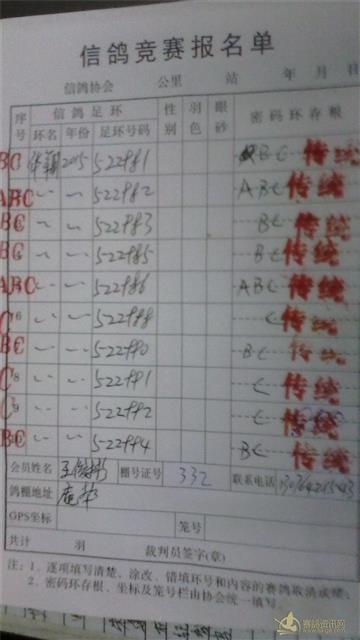 信鸽竞赛报名单
信鸽协会 公里 站 年 月 日
序号 信鸽足环 性别 羽色 眼砂 密码环存根
环名 年份 足环号码
BC 2015 5-22981 BC 传统
ABC 〃 〃 5-22982 ABC 传统
BC 〃 〃 5-22983 BC 传统
BC 〃 〃 5-22985 BC 传统
ABC 〃 〃 5-22986 ABC 传统
C 6 〃 〃 5-22988 C 传统
BC 〃 〃 5-22990 BC 传统
C 8 〃 〃 5-22991 C 传统
C 9 〃 〃 5-22992 C 传统
BC 〃 〃 5-22994 BC 传统
会员姓名 棚号证号 332 联系电话
鸽棚地址
GPS坐标 笼号
共计 羽 裁判员签字(章)
注：1、逐项填写清楚，涂改、错填环号和内容的赛鸽取消成绩；
2、密码环存根、坐标及笼号栏由协会统一填写。
赛鸽资讯网